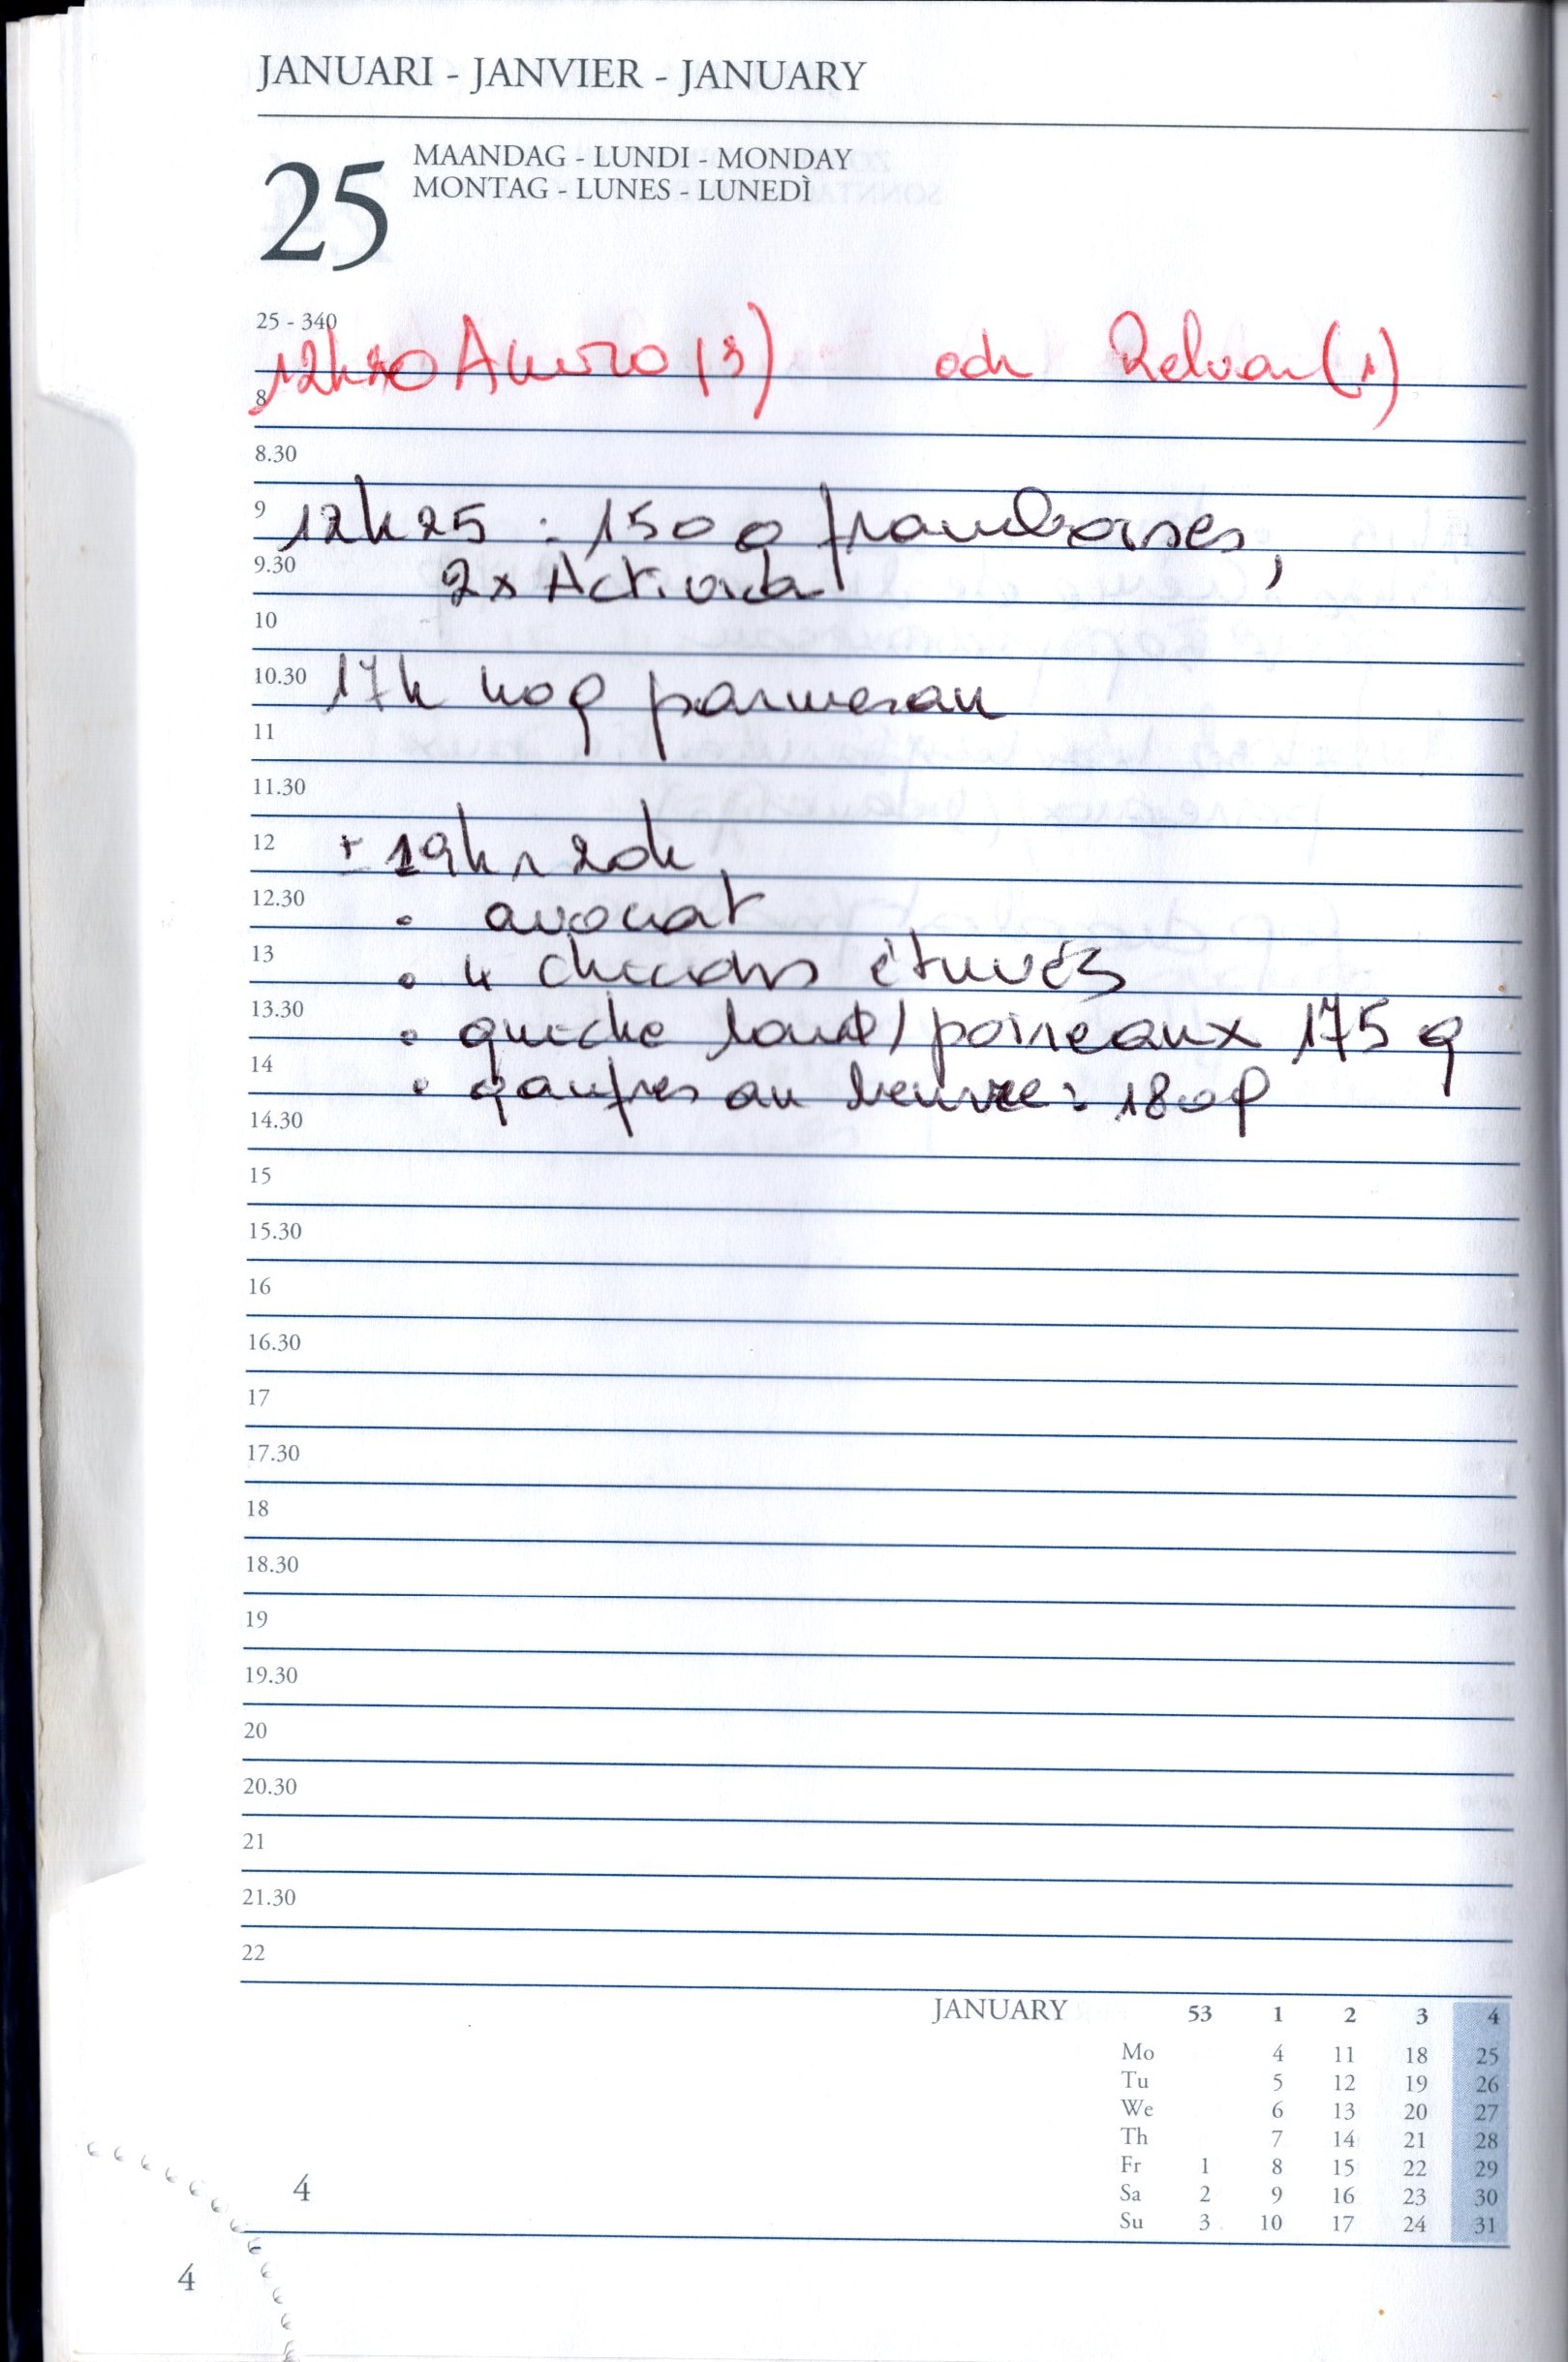 JANUARI - JANVIER - JANUARY
25
MAANDAG - LUNDI - MONDAY
MONTAG - LUNES - LUNEDÌ
25 - 340
12h20 (3) Relvar (1)
8
8.30
9
12h25 : 150 g framboises,
9.30
2x Activia
10
10.30
17h 40g parmesan
11
11.30
12
± 19h 20h
12.30
• avocat
13
• 4 chicons étuvés
13.30
• quiche / poireaux 175 g
14
• gaufres au beurre : 180g
14.30
15
15.30
16
16.30
17
17.30
18
18.30
19
19.30
20
20.30
21
21.30
22
JANUARY 53 1 2 3 4
Mo 4 11 18 25
Tu 5 12 19 26
We 6 13 20 27
Th 7 14 21 28
Fr 1 8 15 22 29
Sa 2 9 16 23 30
Su 3 10 17 24 31
4
4